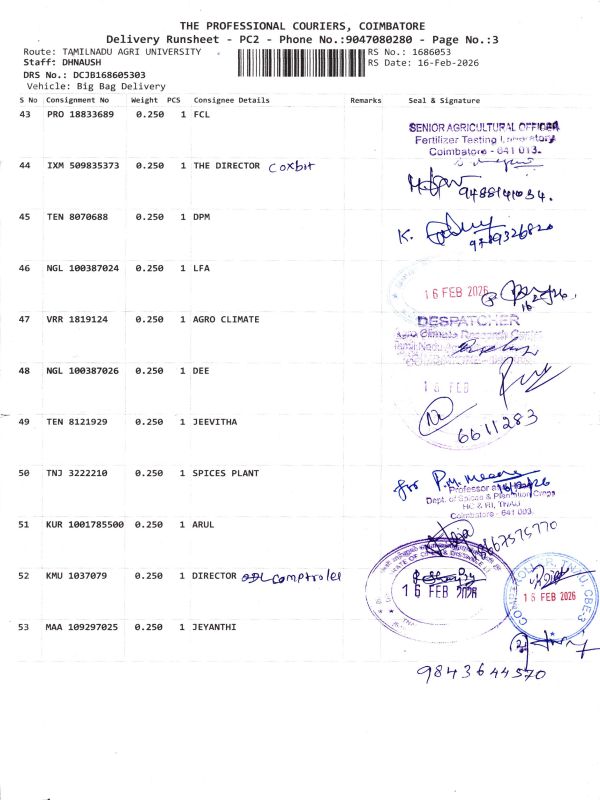 THE PROFESSIONAL COURIERS, COIMBATORE
Delivery Runsheet - PC2 - Phone No.:9047080280 - Page No.:3
Route: TAMILNADU AGRI UNIVERSITY
RS No.: 1686053
Staff: DHNAUSH
RS Date: 16-Feb-2026
DRS No.: DCJB168605303
Vehicle: Big Bag Delivery
S No Consignment No Weight PCS Consignee Details Remarks Seal & Signature
43 PRO 18833689 0.250 1 FCL
SENIOR AGRICULTURAL OFFICER
Fertilizer Testing Laboratory
Coimbatore - 641 013.
44 IXM 509835373 0.250 1 THE DIRECTOR Coxbit
9488141034.
45 TEN 8070688 0.250 1 DPM
K.
46 NGL 100387024 0.250 1 LFA
16 FEB 2026
47 VRR 1819124 0.250 1 AGRO CLIMATE
DESPATCHER
Agro Climate Research Center
Tamil Nadu
48 NGL 100387026 0.250 1 DEE
16 FEB
49 TEN 8121929 0.250 1 JEEVITHA
6611283
50 TNJ 3222210 0.250 1 SPICES PLANT
for P.M. meena
Professor
Dept. of Spices & Plantation Crops
HC & RI, TNAU
Coimbatore - 641 003.
51 KUR 1001785500 0.250 1 ARUL
8667575770
52 KMU 1037079 0.250 1 DIRECTOR ODL Comptroller
16 FEB 2026
16 FEB 2026
COMPTROLLER, TNAU, CBE-3
53 MAA 109297025 0.250 1 JEYANTHI
9843644570